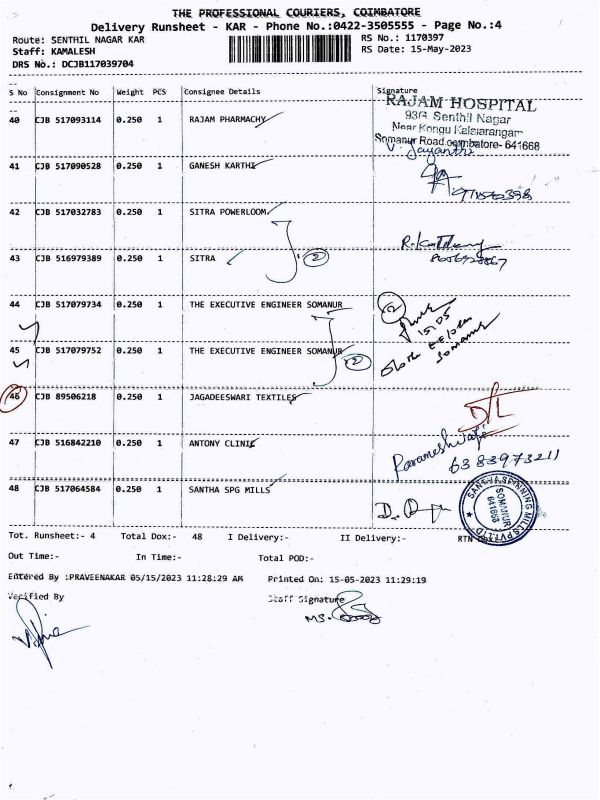 THE PROFESSIONAL COURIERS, COIMBATORE
Delivery Runsheet - KAR - Phone No.:0422-3505555 - Page No.:4
Route: SENTHIL NAGAR KAR
RS No.: 1170397
Staff: KAMALESH
RS Date: 15-May-2023
DRS No.: DCJB117039704
S No Consignment No Weight PCS Consignee Details Signature
RAJAM HOSPITAL
93/3 Senthil Nagar
Near Kongu Kalaiarangam
Somanur Road, coimbatore- 641668
40 CJB 517093114 0.250 1 RAJAM PHARMACHY
Jayanthi
41 CJB 517090528 0.250 1 GANESH KARTHI
42 CJB 517032783 0.250 1 SITRA POWERLOOM
43 CJB 516979389 0.250 1 SITRA
2
44 CJB 517079734 0.250 1 THE EXECUTIVE ENGINEER SOMANUR
2
15/05
45 CJB 517079752 0.250 1 THE EXECUTIVE ENGINEER SOMANUR
2
Somanur
46 CJB 89506218 0.250 1 JAGADEESWARI TEXTILES
DL
47 CJB 516842210 0.250 1 ANTONY CLINIC
Parameshwari
6383973211
48 CJB 517064584 0.250 1 SANTHA SPG MILLS
SANTHA SPINNING MILLS PVT LTD
SOMANUR
641668
Tot. Runsheet:- 4 Total Dox:- 48 I Delivery:- II Delivery:- RTN
Out Time:- In Time:- Total POD:-
Entered By :PRAVEENAKAR 05/15/2023 11:28:29 AM Printed On: 15-05-2023 11:29:19
Verified By Staff Signature
MS.